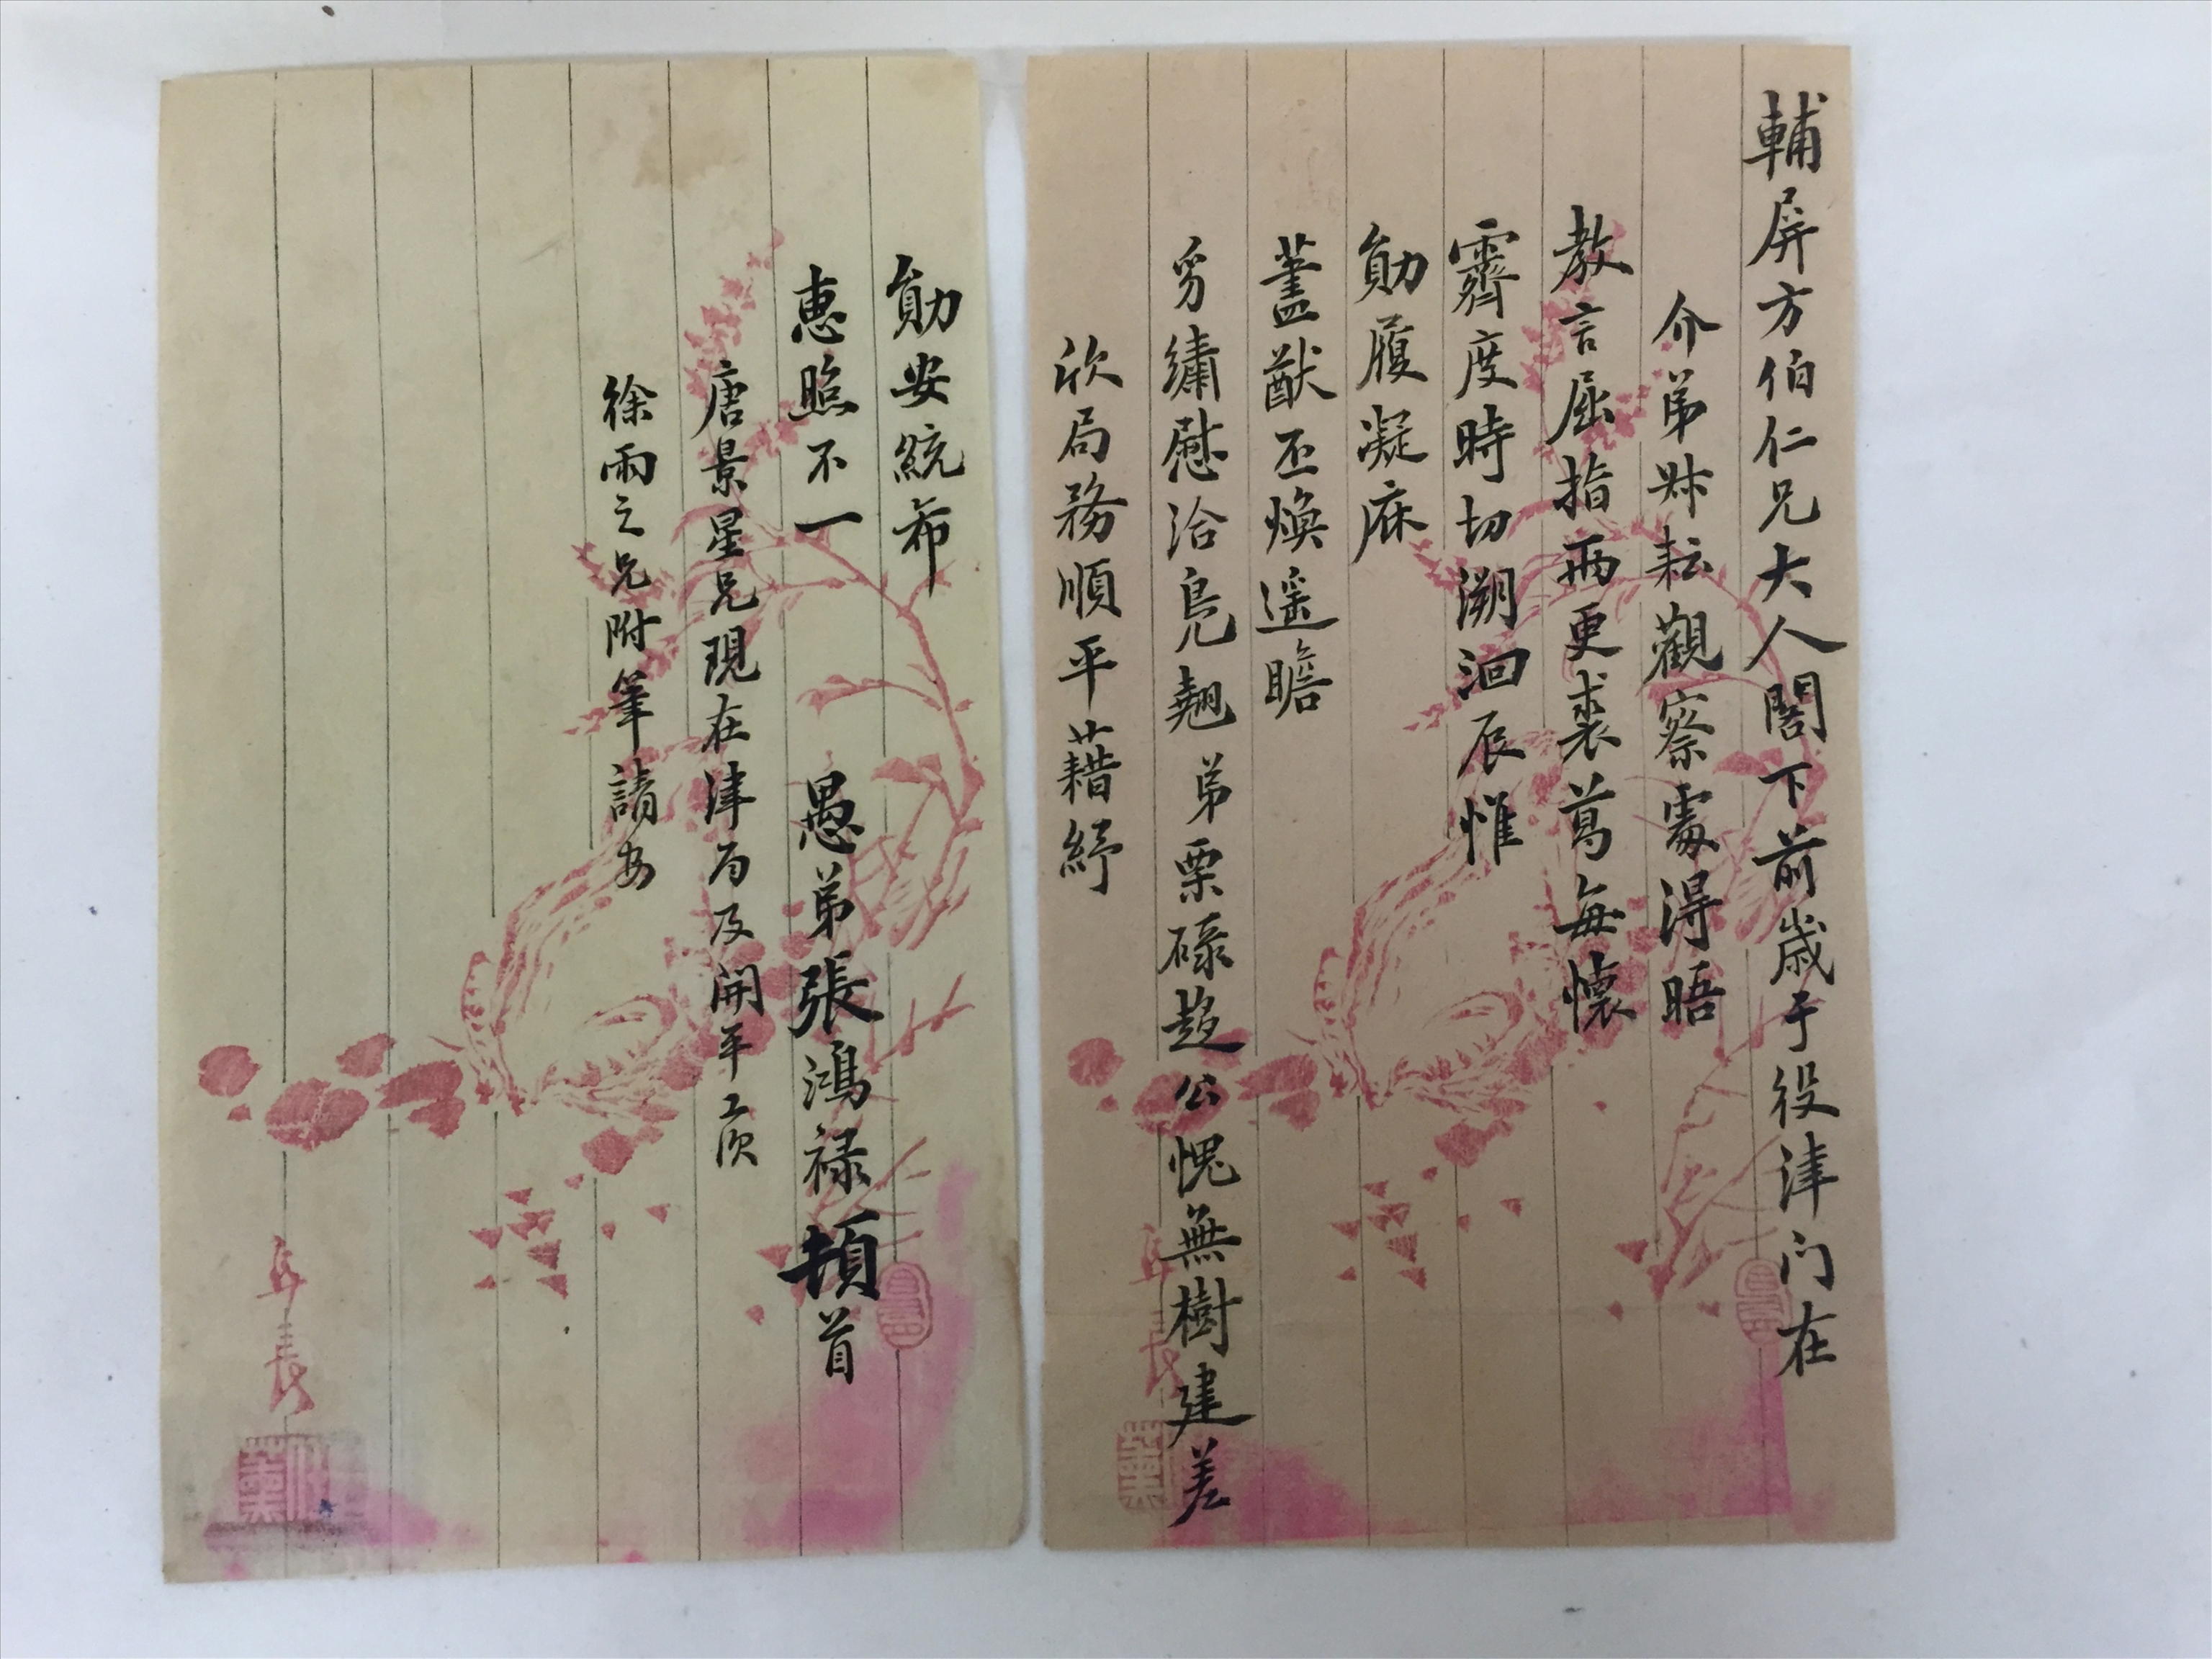 輔屏方伯仁兄大人閣下前歲于役津门在
介弟眎耘觀察處得晤
教言屈指兩更裘葛每懷
霽度時切溯洄辰惟
勛履凝庥
藎猷丕煥遥瞻
繡慰洽鳧翹弟栗碌趨公愧無樹建差
欣局務順平藉紓
勛安統希
惠照不一 愚弟張鴻禄頓首
唐景星兄現在津局及開平工次
徐雨之兄附筆請安